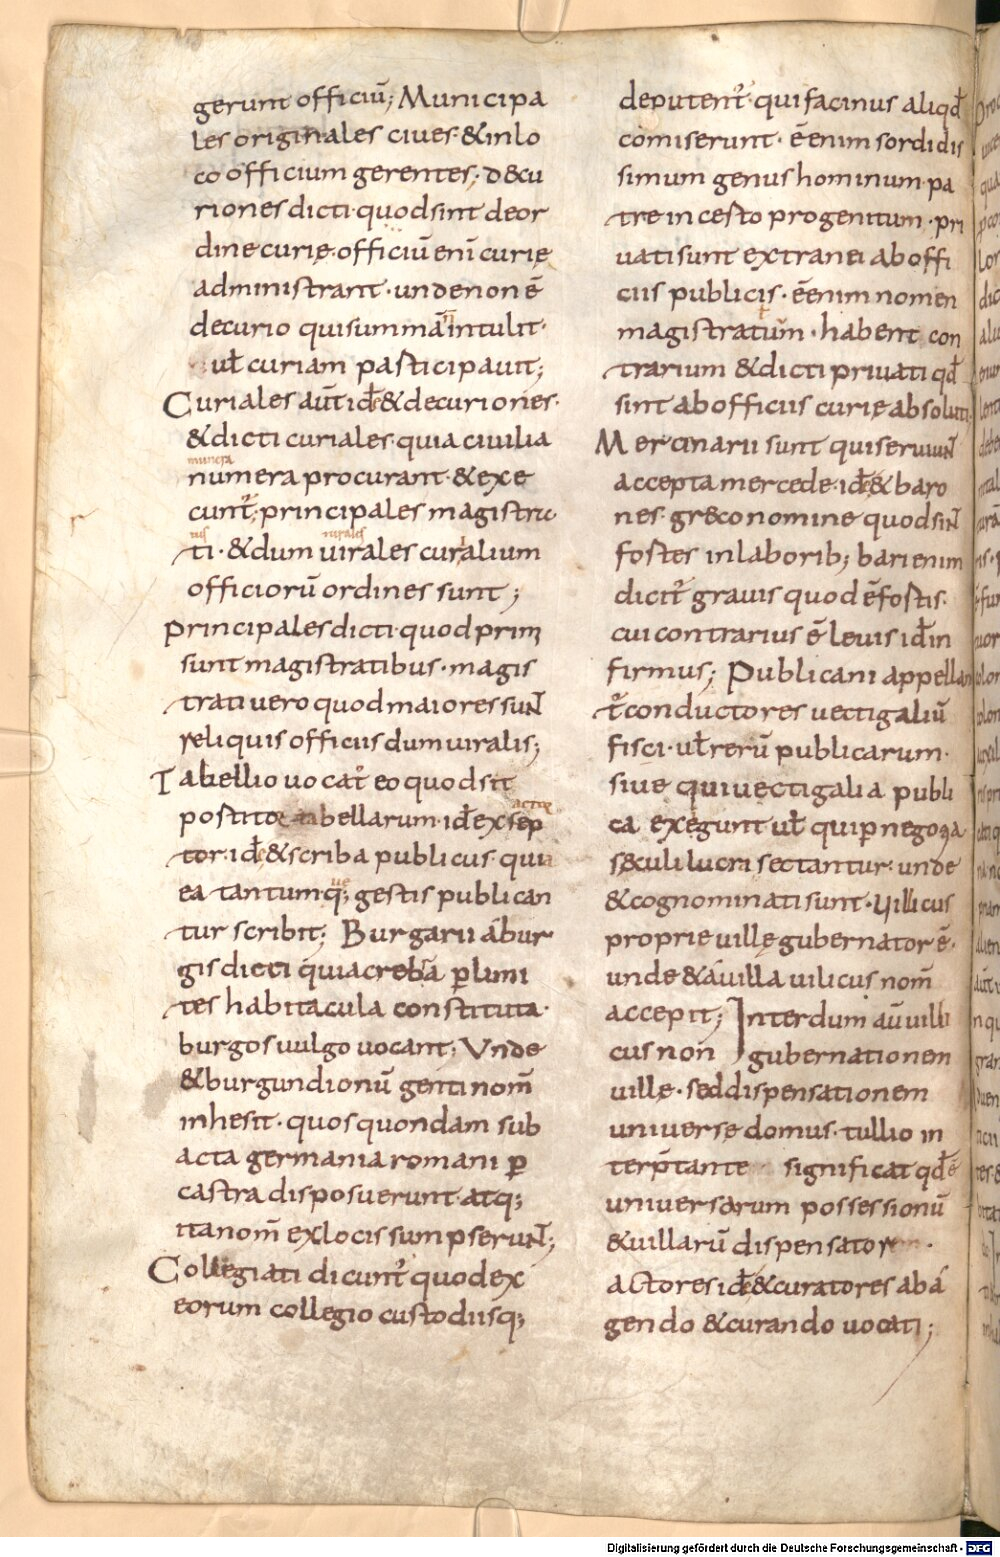 gerunt officiū; Municipa
les originales ciues· &inlo
co officium gerentes; d&cu
riones dicti· quod sint deor
dine curię· officiū enī curię
administrant· unde non ē
decurio qui summā intulit·
uł curiam pasticipauit;
Curiales aūt idē & decuriones·
& dicti curiales· quia ciuilia
munera
numera procurant· & exe
cunt᷒; principales magistra
tus
ti· & dum uirales curalium
officiorū ordines sunt;
Principales dicti· quod primi
sunt magistratibus· magis
trati uero quod maiores sunt
reliquis officiis dumuiralis;
Tabellio uocat᷒ eo quod sit
postitor tabellarum· idē exsep
tor· idē & scriba publicus qui
ea tantumq; gestis publican
tur scribit; Burgarii ábur
gis dicti quia crebra ꝑ limi
tes habitacula constituta·
burgos uulgo uocant; Vnde
& burgundionū genti nom̄
inhesit· quos quondam sub
acta germania romani ꝑ
castra disposuerunt· atq;
ita nom̄ exlocis sumpserunt;
Collegiati dicunt᷒ quod ex
eorum collegio custodiisq;
deputent᷒· qui facinus aliqđ
comiserunt· ē enim sordidis
simum genus hominum· pa
tre incesto progenitum· pri
uati sunt extranei ab offi
ciis publicis· ē enim nomen
magistratum· habent con
trarium & dicti priuati qđ
sint ab officiis curię absoluti·
Mercinarii sunt qui seruiunt
accepta mercede· idē & baro
nes· gr&co nomine quod sint
fostes in laborib; bari enim
dicit᷒ grauis quod ē fostis·
cui contrarius ē leuis· id in
firmus; Publicani appellan
t᷒ conductores uectigaliū
fisci· uł rerū publicarum·
siue qui uectigalia publi
ca exegunt uł qui ꝑ negotia
s&culi lucri sectantur· unde
& cognominati sunt· Uillicus
proprie uillę gubernator ē·
unde & áuilla uilicus nom̄
accepit; Interdum aū uilli
cus non gubernationem
uillę· sed dispensationem
uniuersę domus· tullio in
terp̄tante significat qđ ē
uniuersarum possessionū
& uillarū dispensator
actores idē & curatores ab á
gendo & curando uocati;
Digitalisierung gefördert durch die Deutsche Forschungsgemeinschaft - DFG